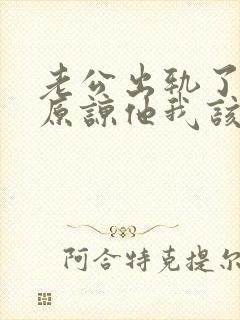 老公出轨了
原谅他我该
阿合特克提尔